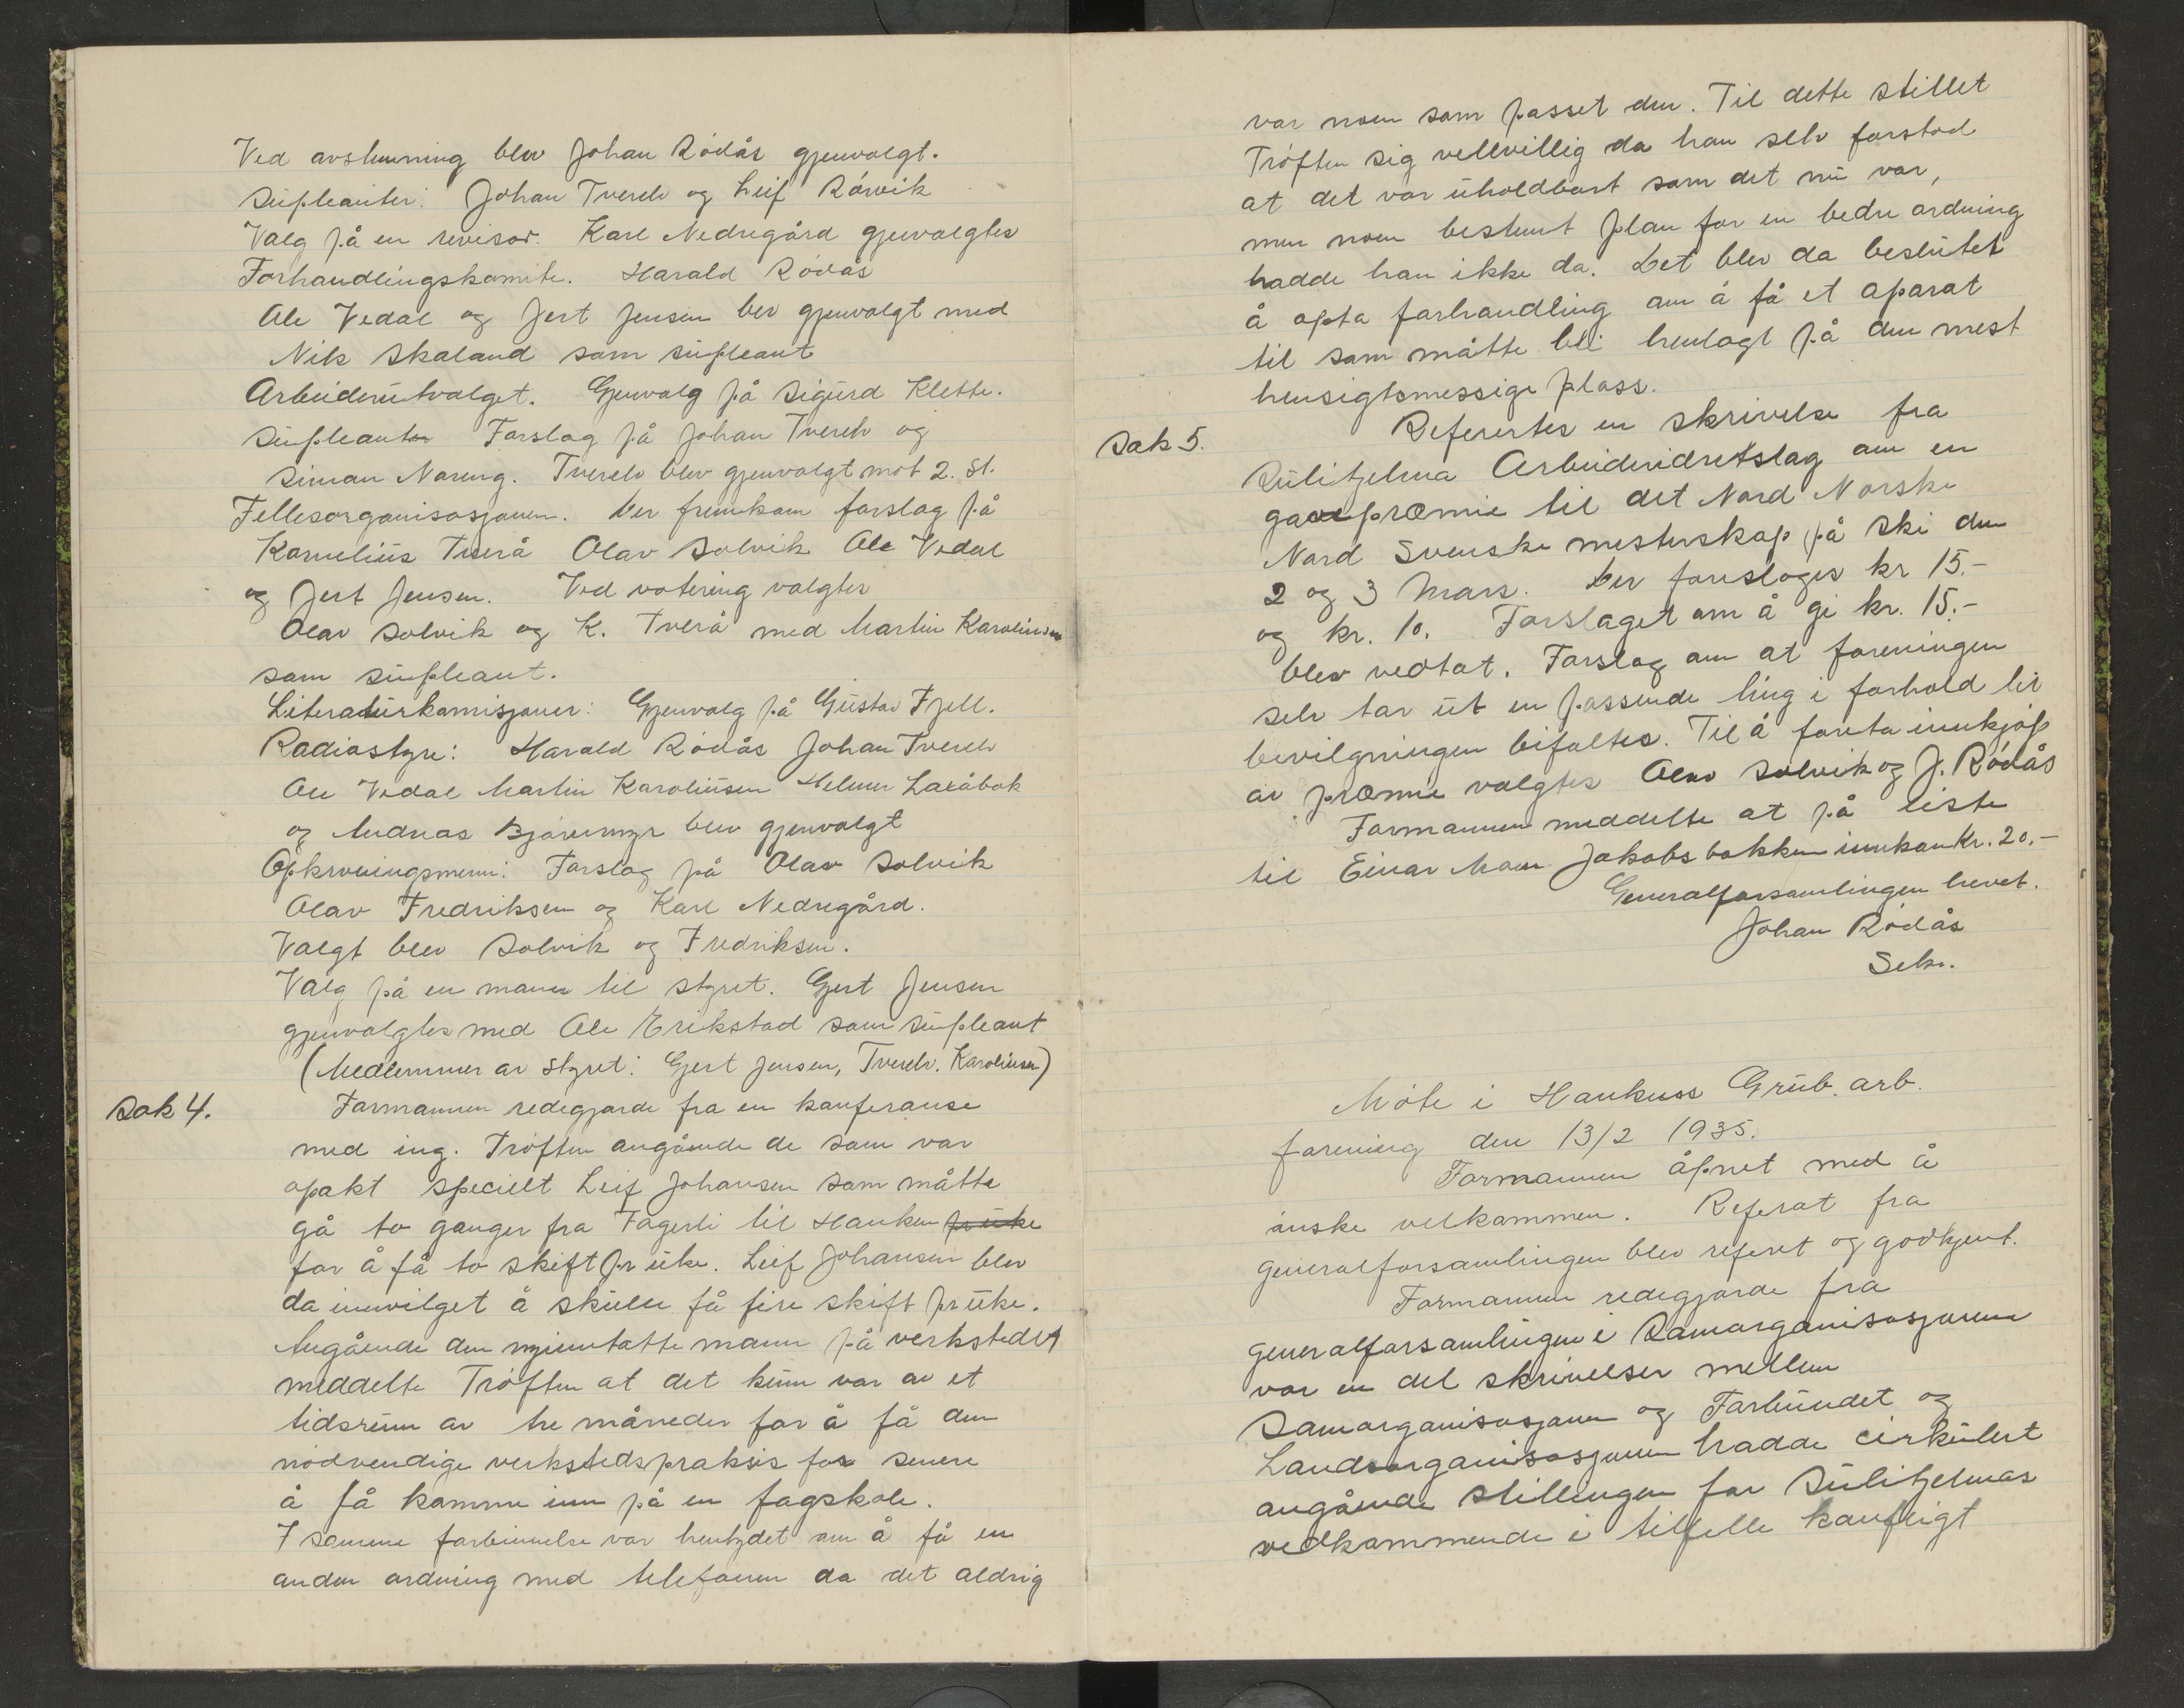 Ved avstemning blev Johan Rödås gjenvalgt.
Supleanter: Johan Tverelv og Leif Rörvik
Valg på en revisor. Karl Nedregård gjenvalgtes
Forhandlingskomite. Harald Rödås
Ole Vedal og Jert Jensen ble gjenvalgt med
Nik Skaland som supleant
Arbeiderutvalget. Gjenvalg på Sigurd Klette.
Supleanter Forslag på Johan Tverelv og
Simon Noreng. Tverelv blev gjenvalgt mot 2. St.
Fellesorganisasjonen. Der fremkom forslag på
Kornelius Tverå Olav Solvik Ole Vedal
og Jert Jensen. Ved votering valgtes
Olav Solvik og K. Tverå med Martin Karoliusen
som supleant.
Literaturkomisjoner: Gjenvalg på Gustav Fjell.
Radiostyre: Harald Rödås Johan Tverelv
Ole Vedal Martin Karoliusen Helmer Laxåbak
og Andreas Bjørnmyr blev gjenvalgt
Opkrevningsmenn: Forslag på Olav Solvik
Olav Fredriksen og Karl Nedregård.
Valgt blev Solvik og Fredriksen.
Valg på en mann til styret. Gert Jensen
gjenvalgtes med Ole Erikstad som supleant
(Medlemmer av styret: Gjert Jensen, Tverelv. Karoliusen)
Sak 4. Formannen redegjorde fra en konferanse
med ing. Tröften angående de som var
opakt specielt Leif Johansen som måtte
gå to ganger fra Fagerli til Hanken pr uke
for å få to skift pr uke. Leif Johansen blev
da innvilget å skulle få fire skift pr uke.
Angående den nyinntatte mann på verkstedet
meddelte Tröften at det kun var av et
tidsrum av tre måneder for å få den
nödvendige verkstedspraksis for senere
å få komme inn på en fagskole.
I samme forbinnelse var hentydet om å få en
anden ordning med telefonen da det aldrig
var noen som passet den. Til dette stillet
Tröften sig vellvillig da han selv forstod
at det var uholdbart som det nu var,
men noen bestemt plan for en bedre ordning
hadde han ikke da. Det blev da besluttet
å opta forhandling om å få et aparat
til som måtte bli henlagt på den mest
hensigtsmessige plass.
Sak 5. Refererter en skrivelse fra
Sulitjelma Arbeideridretslag om en
gavepræmie til det Nord Norske
Nord Svenske mesterskap på ski den
2 og 3 Mars. Der foresloges kr 15.-
og kr. 10. Forslaget om å gi kr. 15.-
blev vedtat. Forslag om at foreningen
selv tar ut en passende ting i forhold til
bevilgningen bifaltes. Til å foreta innkjöp
av præmie valgtes Olav Solvik og J. Rödås
Formannen meddelte at på liste
til Einar Moen Jakobsbakken innkom Kr. 20.-
Generalforsamlingen hevet.
Johan Rödås
Sekr.
Möte i Hankens Grub. arb.
forening den 13/2 1935.
Formannen åpnet med å
önske velkommen. Referat fra
generalforsamlingen blev referet og godkjent.
Formannen redegjorde fra
generalforsamlingen i Samorganisasjonen
var en del skrivelser mellem
Samorganisasjonen og Forbundet og
Landsorganisasjonen hadde cirkulert
angående stillingen for Sulitjelmas
vedkommende i tilfelle konfligt